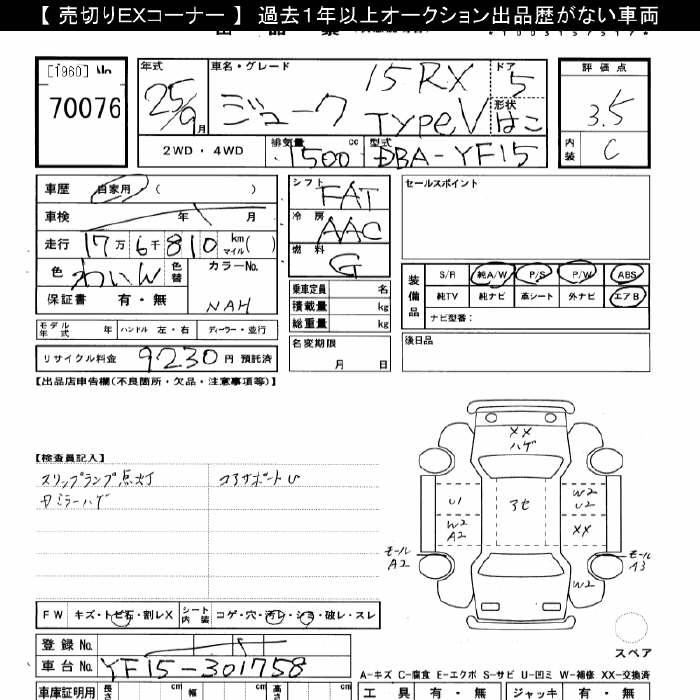 【 売切りEXコーナー 】 過去１年以上オークション出品歴がない車両
[1960] No.
70076
年式
25/9 月
車名・グレード
15RX
ジューク TYPE V
ドア
5
形状
はこ
2WD ・ 4WD
排気量
1500 cc
型式
DBA-YF15
評価点
3.5
内装
C
車歴 自家用 ( )
車検 年 月
走行 17万 6千 810 km マイル ( )
色 わいん 色替
カラーNo.
NAH
保証書 有・無
モデル年式 年 ハンドル 左・右 ディーラー・並行
リサイクル料金 9230 円 預託済
シフト
FAT
冷房
AAC
燃料
G
乗車定員 名
積載量 kg
総重量 kg
名変期限
月 日
セールスポイント
装備品
S/R 純A/W P/S P/W ABS
純TV 純ナビ 革シート 外ナビ エアB
ナビ型番：
後日品
【出品店申告欄(不良箇所・欠品・注意事項等)】
【検査員記入】
スリップランプ点灯
コアサポートU
Rミラーハゲ
XX
ハゲ
U1
アセ
W2
U2
W2
A2
XX
モール
A2
モール
A3
W2
スペア
FW キズ・トビ石・割レX シート内装 コゲ・穴・汚レ・シミ・破レ・スレ
登録 No.
車台 No. YF15-301758
A-キズ C-腐食 E-エクボ S-サビ U-凹ミ W-補修 XX-交換済
車庫証明用 長さ cm 幅 cm 高さ cm
工具 有・無 ジャッキ 有・無